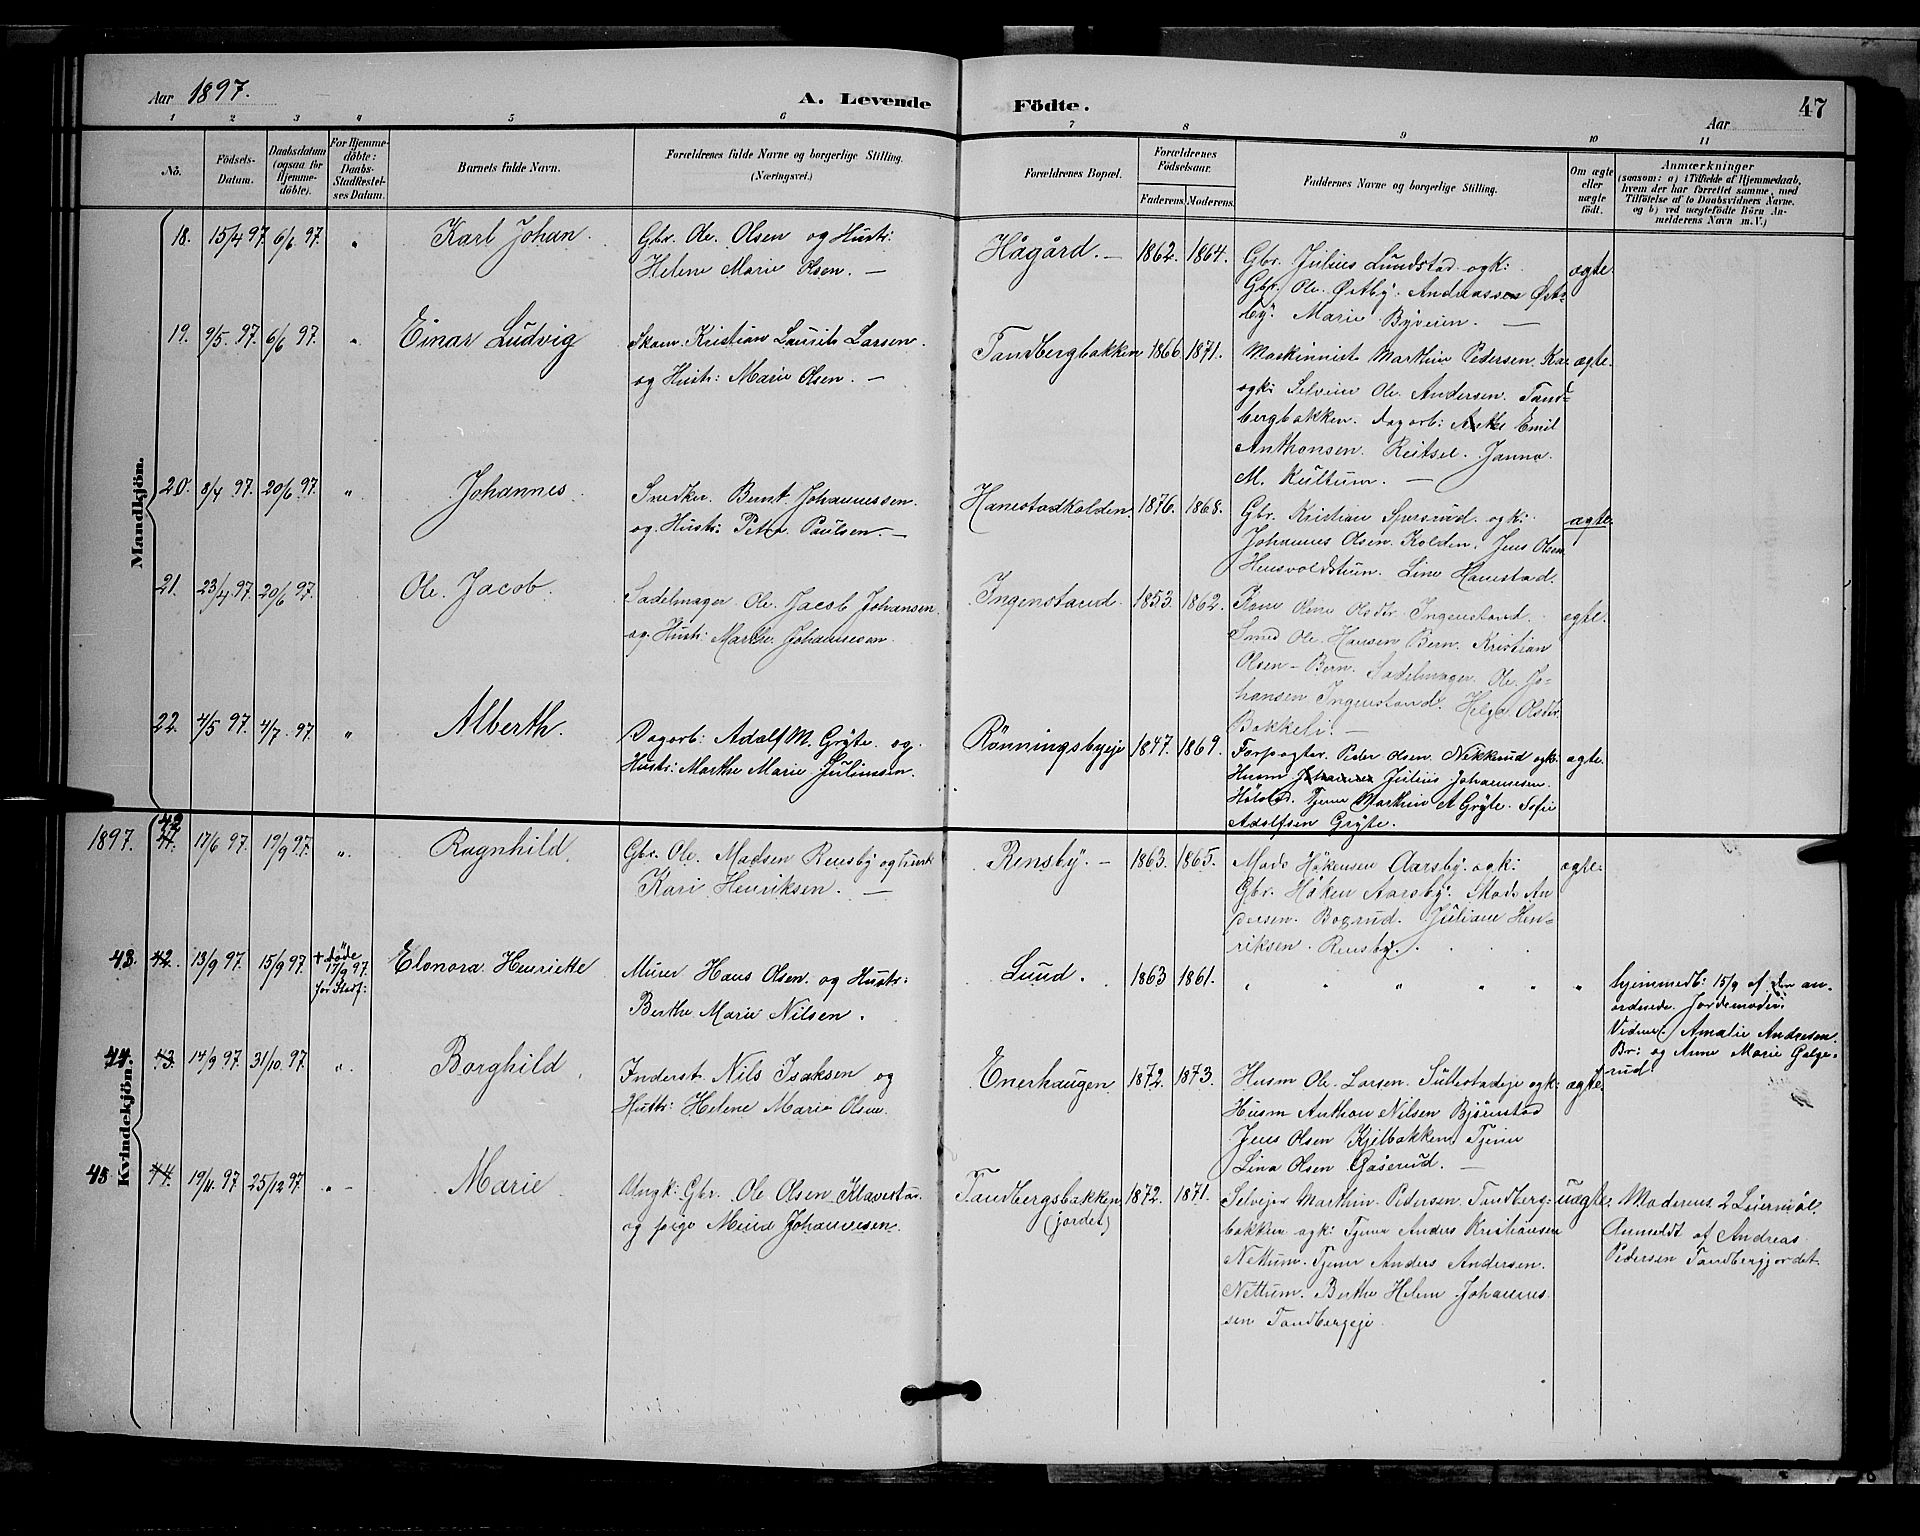 Aar 1897.
A. Levende
Födte.
Aar
47
1 2 3 4 5 6 7 8 9 10 11
No.
Födsels-
Datum.
Daabsdatum
(ogsaa for
Hjemme-
döbte).
For Hjemme-
döbte:
Daabs-
Stadfæstel-
ses Datum.
Barnets fulde Navn.
Forældrenes fulde Navne og borgerlige Stilling.
(Næringsvei.)
Forældrenes Bopæl.
Forældrenes
Födselsaar.
Faderens. Moderens.
Faddernes Navne og borgerlige Stilling.
Om ægte
eller
uægte
født.
Anmærkninger
(saasom: a) i Tilfælde af Hjemmedaab,
hvem der har forrettet samme, med
Tilföielse af to Daabsvidners Navne,
og b) ved uægtefödte Börn An-
melderens Navn m. V.)
Mandkjön.
18. 15/4 97. 6/6 97. „ Karl Johan.
Gbr. Ole Olsen og Hustr:
Helene Marie Olsen. —
Hågård. — 1862. 1864.
Gbr. Julius Lundstad ogk:
Gbr. Ole Østby. Andreassen Øst-
by. Marie Byveien. —
ægte.
19. 9/5. 97. 6/6 97. „ Einar Ludvig
Skom. Kristian Laurits Larsen.
og Hustr: Marie Olsen. —
Tandbergbakken 1866 1871.
Maskinnist Marthin Pedersen.
ogk: Selveier Ole Andersen. Tand-
bergbakken. Dagarb: Emil
Anthonsen. Reitsel. Janna
M. Kultum. —
ægte.
20. 8/4 97. 20/6 97. „ Johannes.
Snedker Bernt Johannessen
og Hustr: Petra Paulsen. —
Hanestadkolden 1876. 1868.
Gbr. Kristian Sparsrud. ogk:
Johannes Olsen Kolden. Jens Olsen
Hensvoldstuen. Line Hanestad.
ægte.
21. 23/4 97. 20/6 97. Ole Jacob.
Sadelmager Ole Jacob Johansen
og Hustr: Marthe Johannesen
Ingenstand. 1853. 1862.
Kone Oline Olsdtr. Ingenstand.
Smed Ole Hansen Bern. Kristian
Olsen — Bern. Sadelmager Ole Jo-
hansen Ingenstand. Helga Olsdtr.
Bakkeli. —
ægte.
22. 4/5 97. 4/7. 97. „ Alberth.
Dagarb: Adolf M. Gryte. og
Hustr: Marthe Marie Julinsen.
Rönningsbyeje 1847. 1869.
Forpagter. Peder Olsen. Nikkrud ogk:
Husm Julius Johannesen
Hölstad. Tjener Marthin A Gryte. Sofie
Adolfsen Gryte.
ægte.
1897.
Kvindekjön.
42 17/6 97. 19/9 97. „ Ragnhild.
Gbr. Ole Madsen Rensby og Hust
Kari Henriksen. —
Rensby. — 1863. 1865.
Mads Håkensen Aarsby. ogk:
Gbr. Håken Aarsby. Mads An
dersen. Bograd. Juliane Hen-
riksen. Rensby.
ægte.
43. 42. 13/9 97. 15/9 97. + döde
17/9 97.
før Stadf:
Elonora Henriette
Murer Hans Olsen. og Hustr:
Berthe Marie Nilsen.
Lund. 1863 1861.
„ „ „ „ „ „ „
Hjemmedb: 15/9 af den an-
ordnede Jordemoder.
Vidner: Amalie Andresen
Br: og Anne Marie Gelge-
rud.
44. 43. 14/9 97. 31/10 97. „ Borghild.
Inderst. Nils Isaksen og
Hustr: Helene Marie Olsen.
Enerhaugen 1872. 1873.
Husm Ole Larsen. Sullestadeje ogk:
Husm Anthon Nilsen Bjørnstad
Jens Olsen Kjelbakken, Tjener
Lina Olsen Gaserud. —
ægte.
45 44. 19/11. 97 25/12 97. „ — Marie
Ungk: Gbr. Ole Olsen Klavestad.
og pige Mina Johannesen.
Tandbergsbakken
(jordet)
1872. 1871.
Selvejer Marthin Pedersen. Tandberg-
bakken ogk: Tjener Anders Kristiansen
Nettum. Tjener Anders Andersen.
Nettum. Berthe Helene Johannes
sen Tandbergeje.
uægte.
Moderens 2 Leiermål.
Anmeldt af Andreas
Pedersen Tandbergjordet.